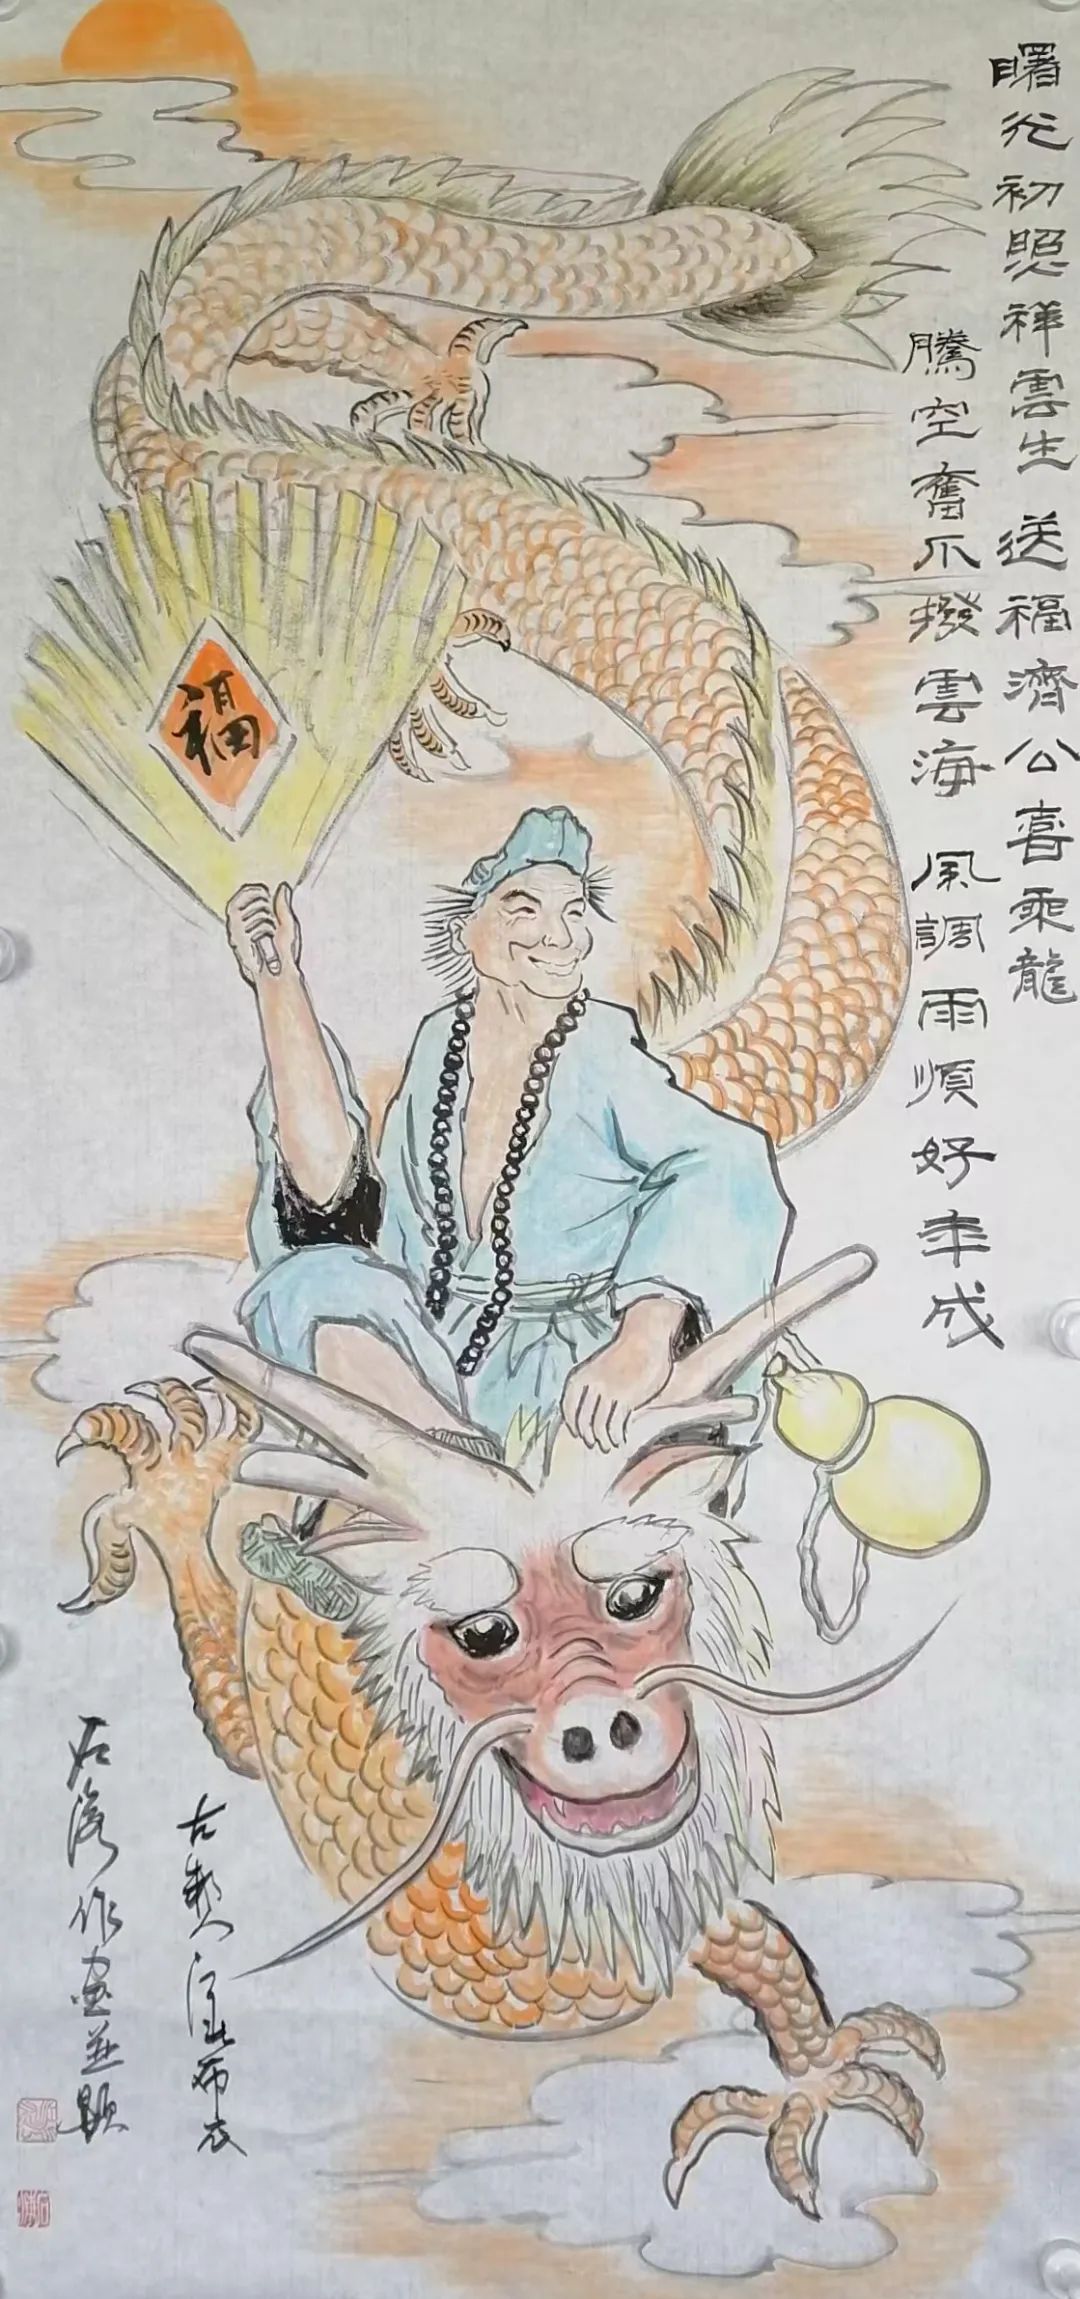 曙光初照祥雲生 送福濟公喜乘龍
騰空奮爪撥雲海 風調雨順好年成
福
布衣
作画並題